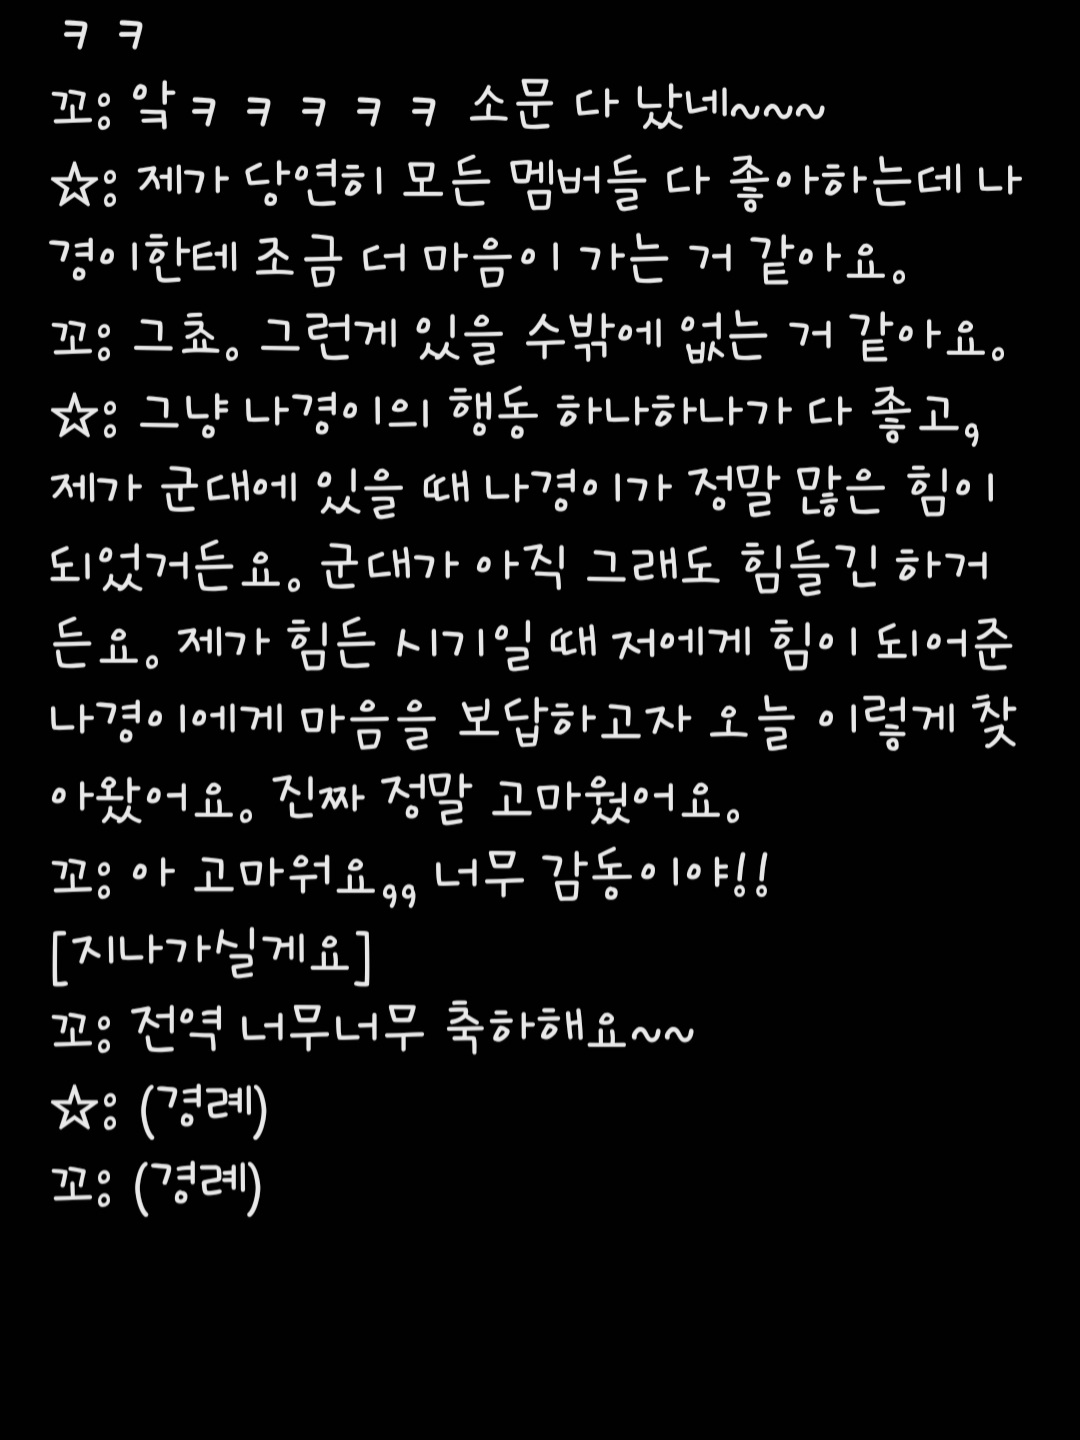 ㅋ ㅋ
꼬: 앜ㅋ ㅋ ㅋ ㅋ ㅋ 소문 다 났네~~~
☆: 제가 당연히 모든 멤버들 다 좋아하는데 나
경이한테 조금 더 마음이 가는 거 같아요.
꼬: 그쵸. 그런게 있을 수밖에 없는 거 같아요.
☆: 그냥 나경이의 행동 하나하나가 다 좋고,
제가 군대에 있을 때 나경이가 정말 많은 힘이
되었거든요. 군대가 아직 그래도 힘들긴 하거
든요. 제가 힘든 시기일 때 저에게 힘이 되어준
나경이에게 마음을 보답하고자 오늘 이렇게 찾
아왔어요. 진짜 정말 고마웠어요.
꼬: 아 고마워요,, 너무 감동이야!!
[지나가실게요]
꼬: 전역 너무너무 축하해요~~
☆: (경례)
꼬: (경례)